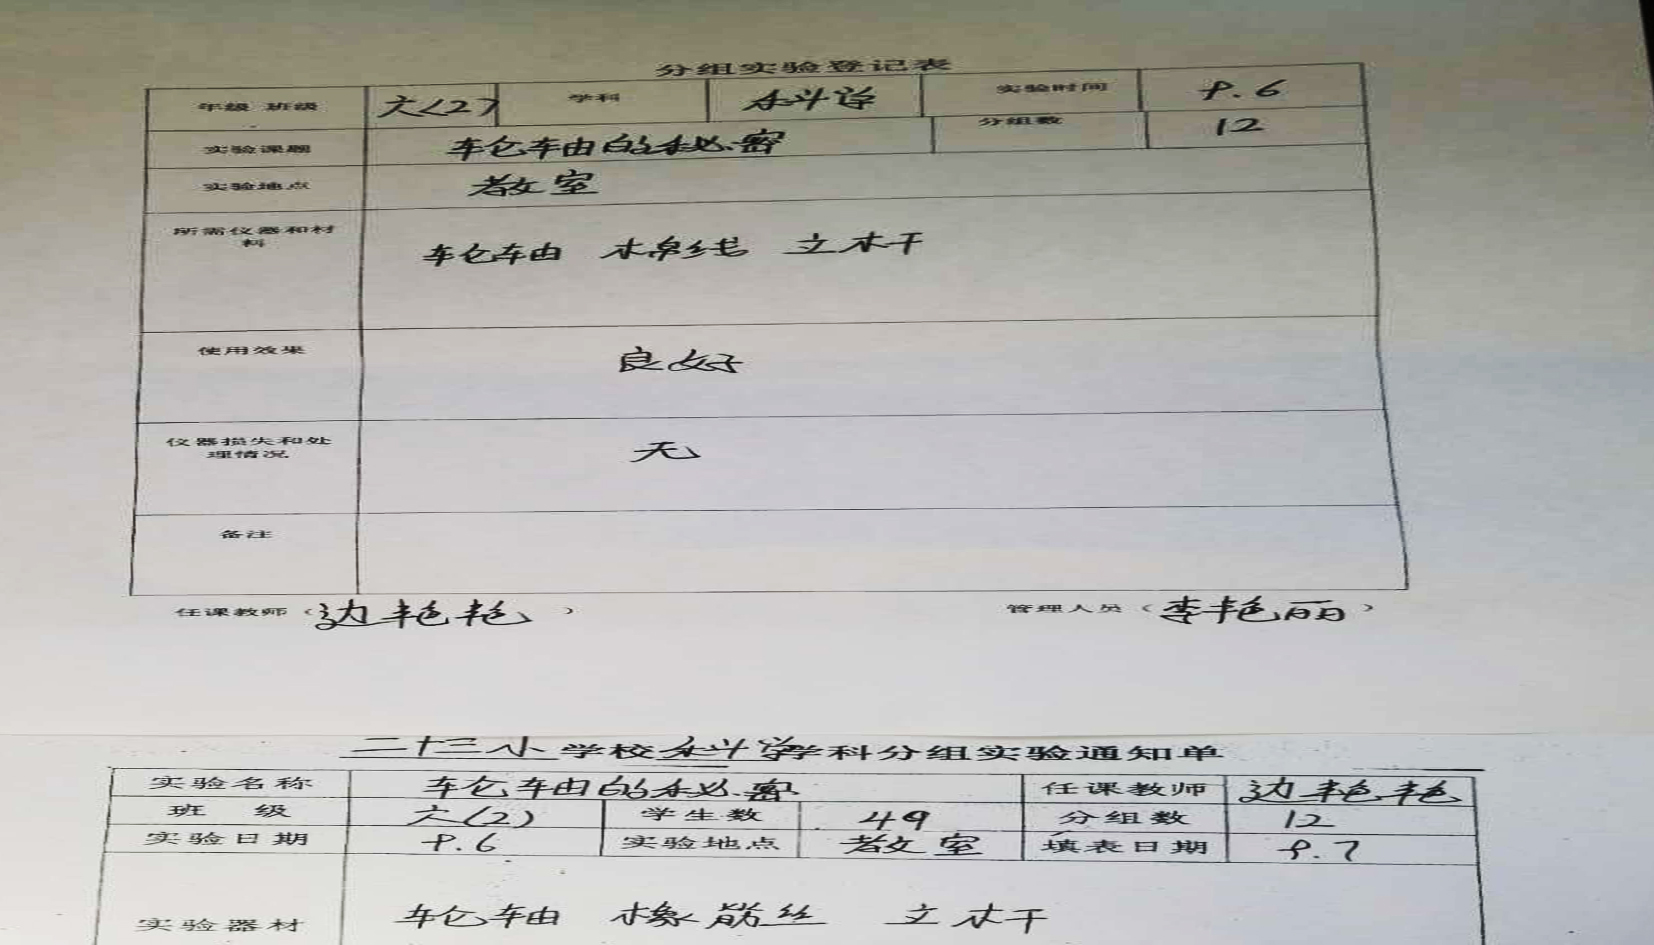 分组实验登记表
年级 班级 六(2) 学科 科学 实验时间 9.6
实验课题 车仑车由的秘密 分组数 12
实验地点 教室
所需仪器和材
料
轮轴 棉线 立杆
使用效果 良好
仪器损失和处
理情况
无
备注
任课教师（边艳艳） 管理人员（李艳丽）
二十三小学校科学学科分组实验通知单
实验名称 轮轴的秘密 任课教师 边艳艳
班 级 六(2) 学生数 49 分组数 12
实验日期 9.6 实验地点 教室 填表日期 9.7
实验器材 轮轴 橡筋丝 立杆